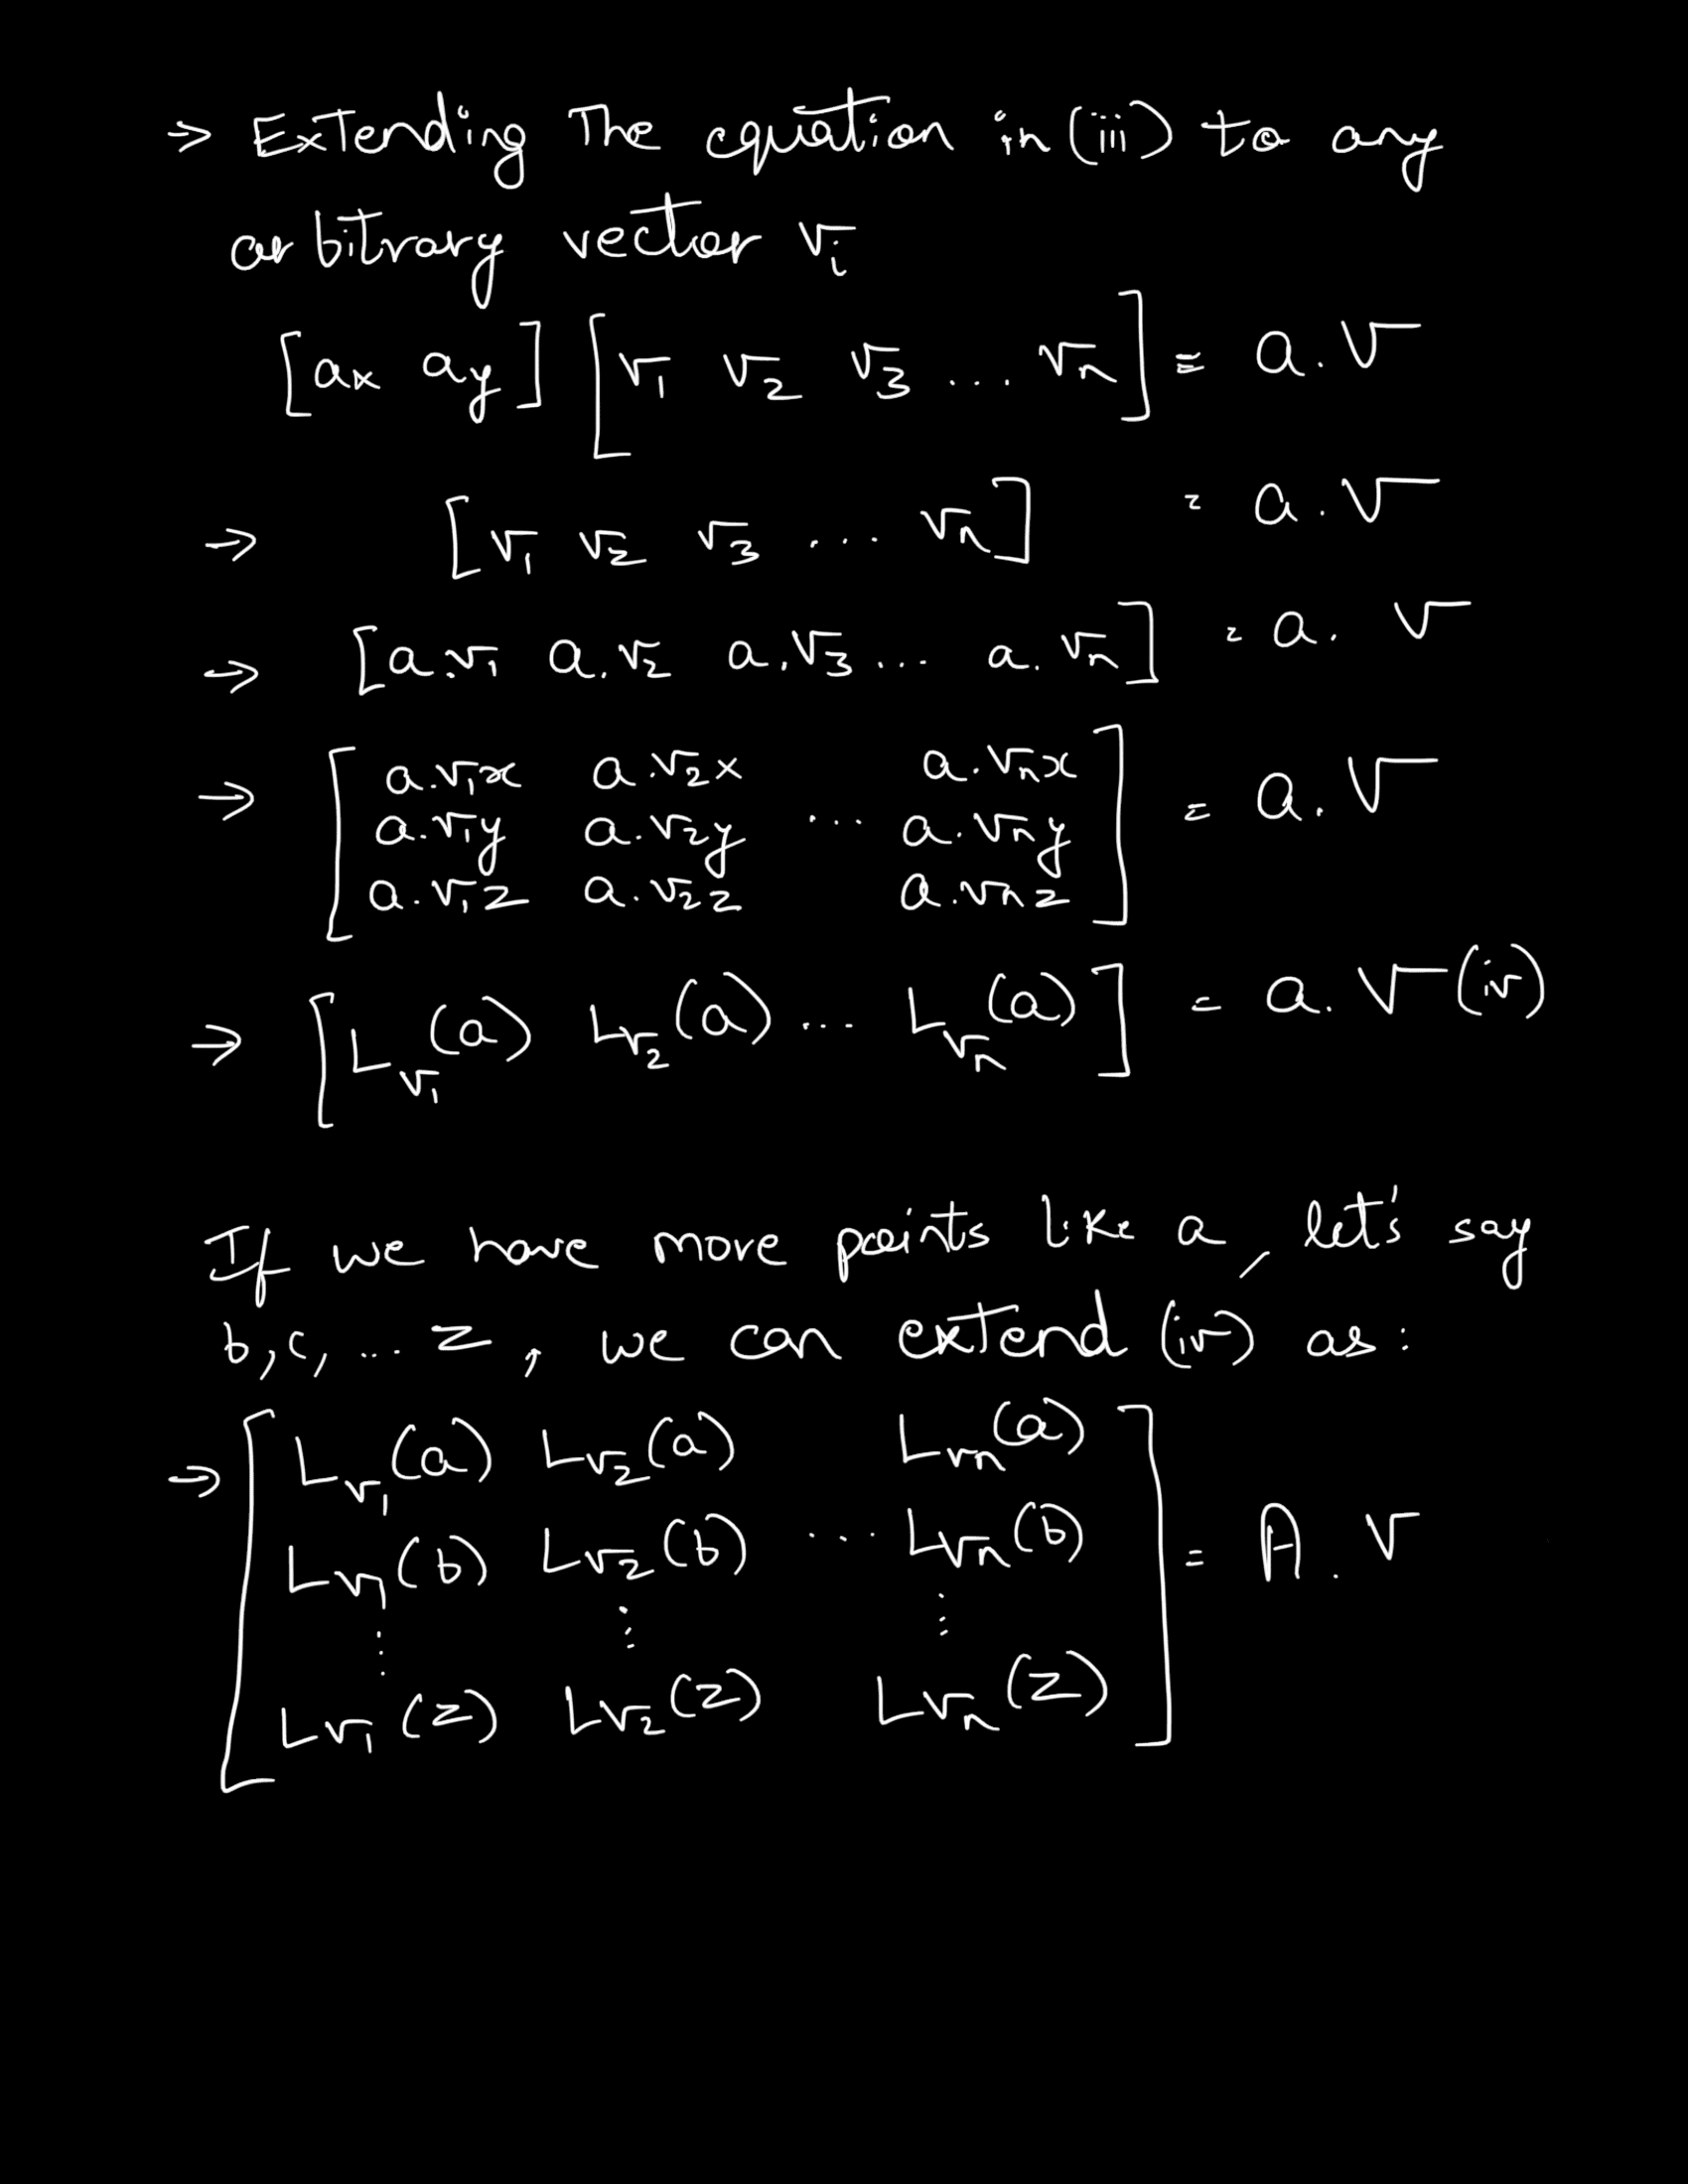 > Extending The equation in (iii) to any
arbitrary vector v_i
[a_x a_y] [v_1 v_2 v_3 ... v_n] = a.V
⇒ [v_1 v_2 v_3 ... v_n] = a.V
⇒ [a.v_1 a.v_2 a.v_3 ... a.v_n] = a.V
⇒ [a.v_1x a.v_2x a.v_nx
a.v_1y a.v_2y ... a.v_ny
a.v_1z a.v_2z a.v_nz] = a.V
⇒ [L_v_1(a) L_v_2(a) ... L_v_n(a)] = a.V (iv)
If we have more points like a, let's say
b, c, ... z, we can extend (iv) as:
⇒ [L_v_1(a) L_v_2(a) L_v_n(a)
L_v_1(b) L_v_2(b) ... L_v_n(b) = A.V
⋮ ⋮ ⋮
L_v_1(z) L_v_2(z) L_v_n(z)]